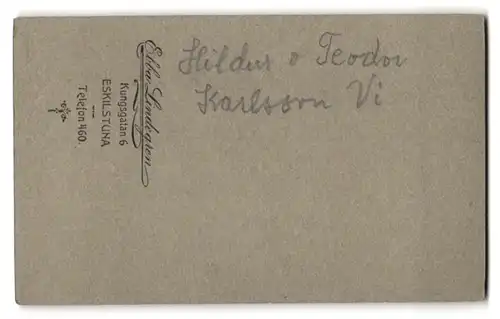 Hildur o Teodor
Karlsson Vi
Ebba Lindegren
Kungsgatan 6
ESKILSTUNA
Telefon 460.